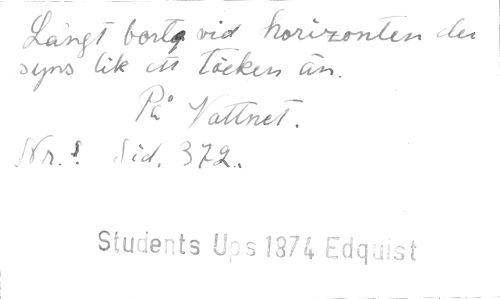 Långt borta vid horizonten den
syns lik ett töcken än.
På Vattnet.
Nr. 8. Sid. 372.
Students Ups 1874 Edquist